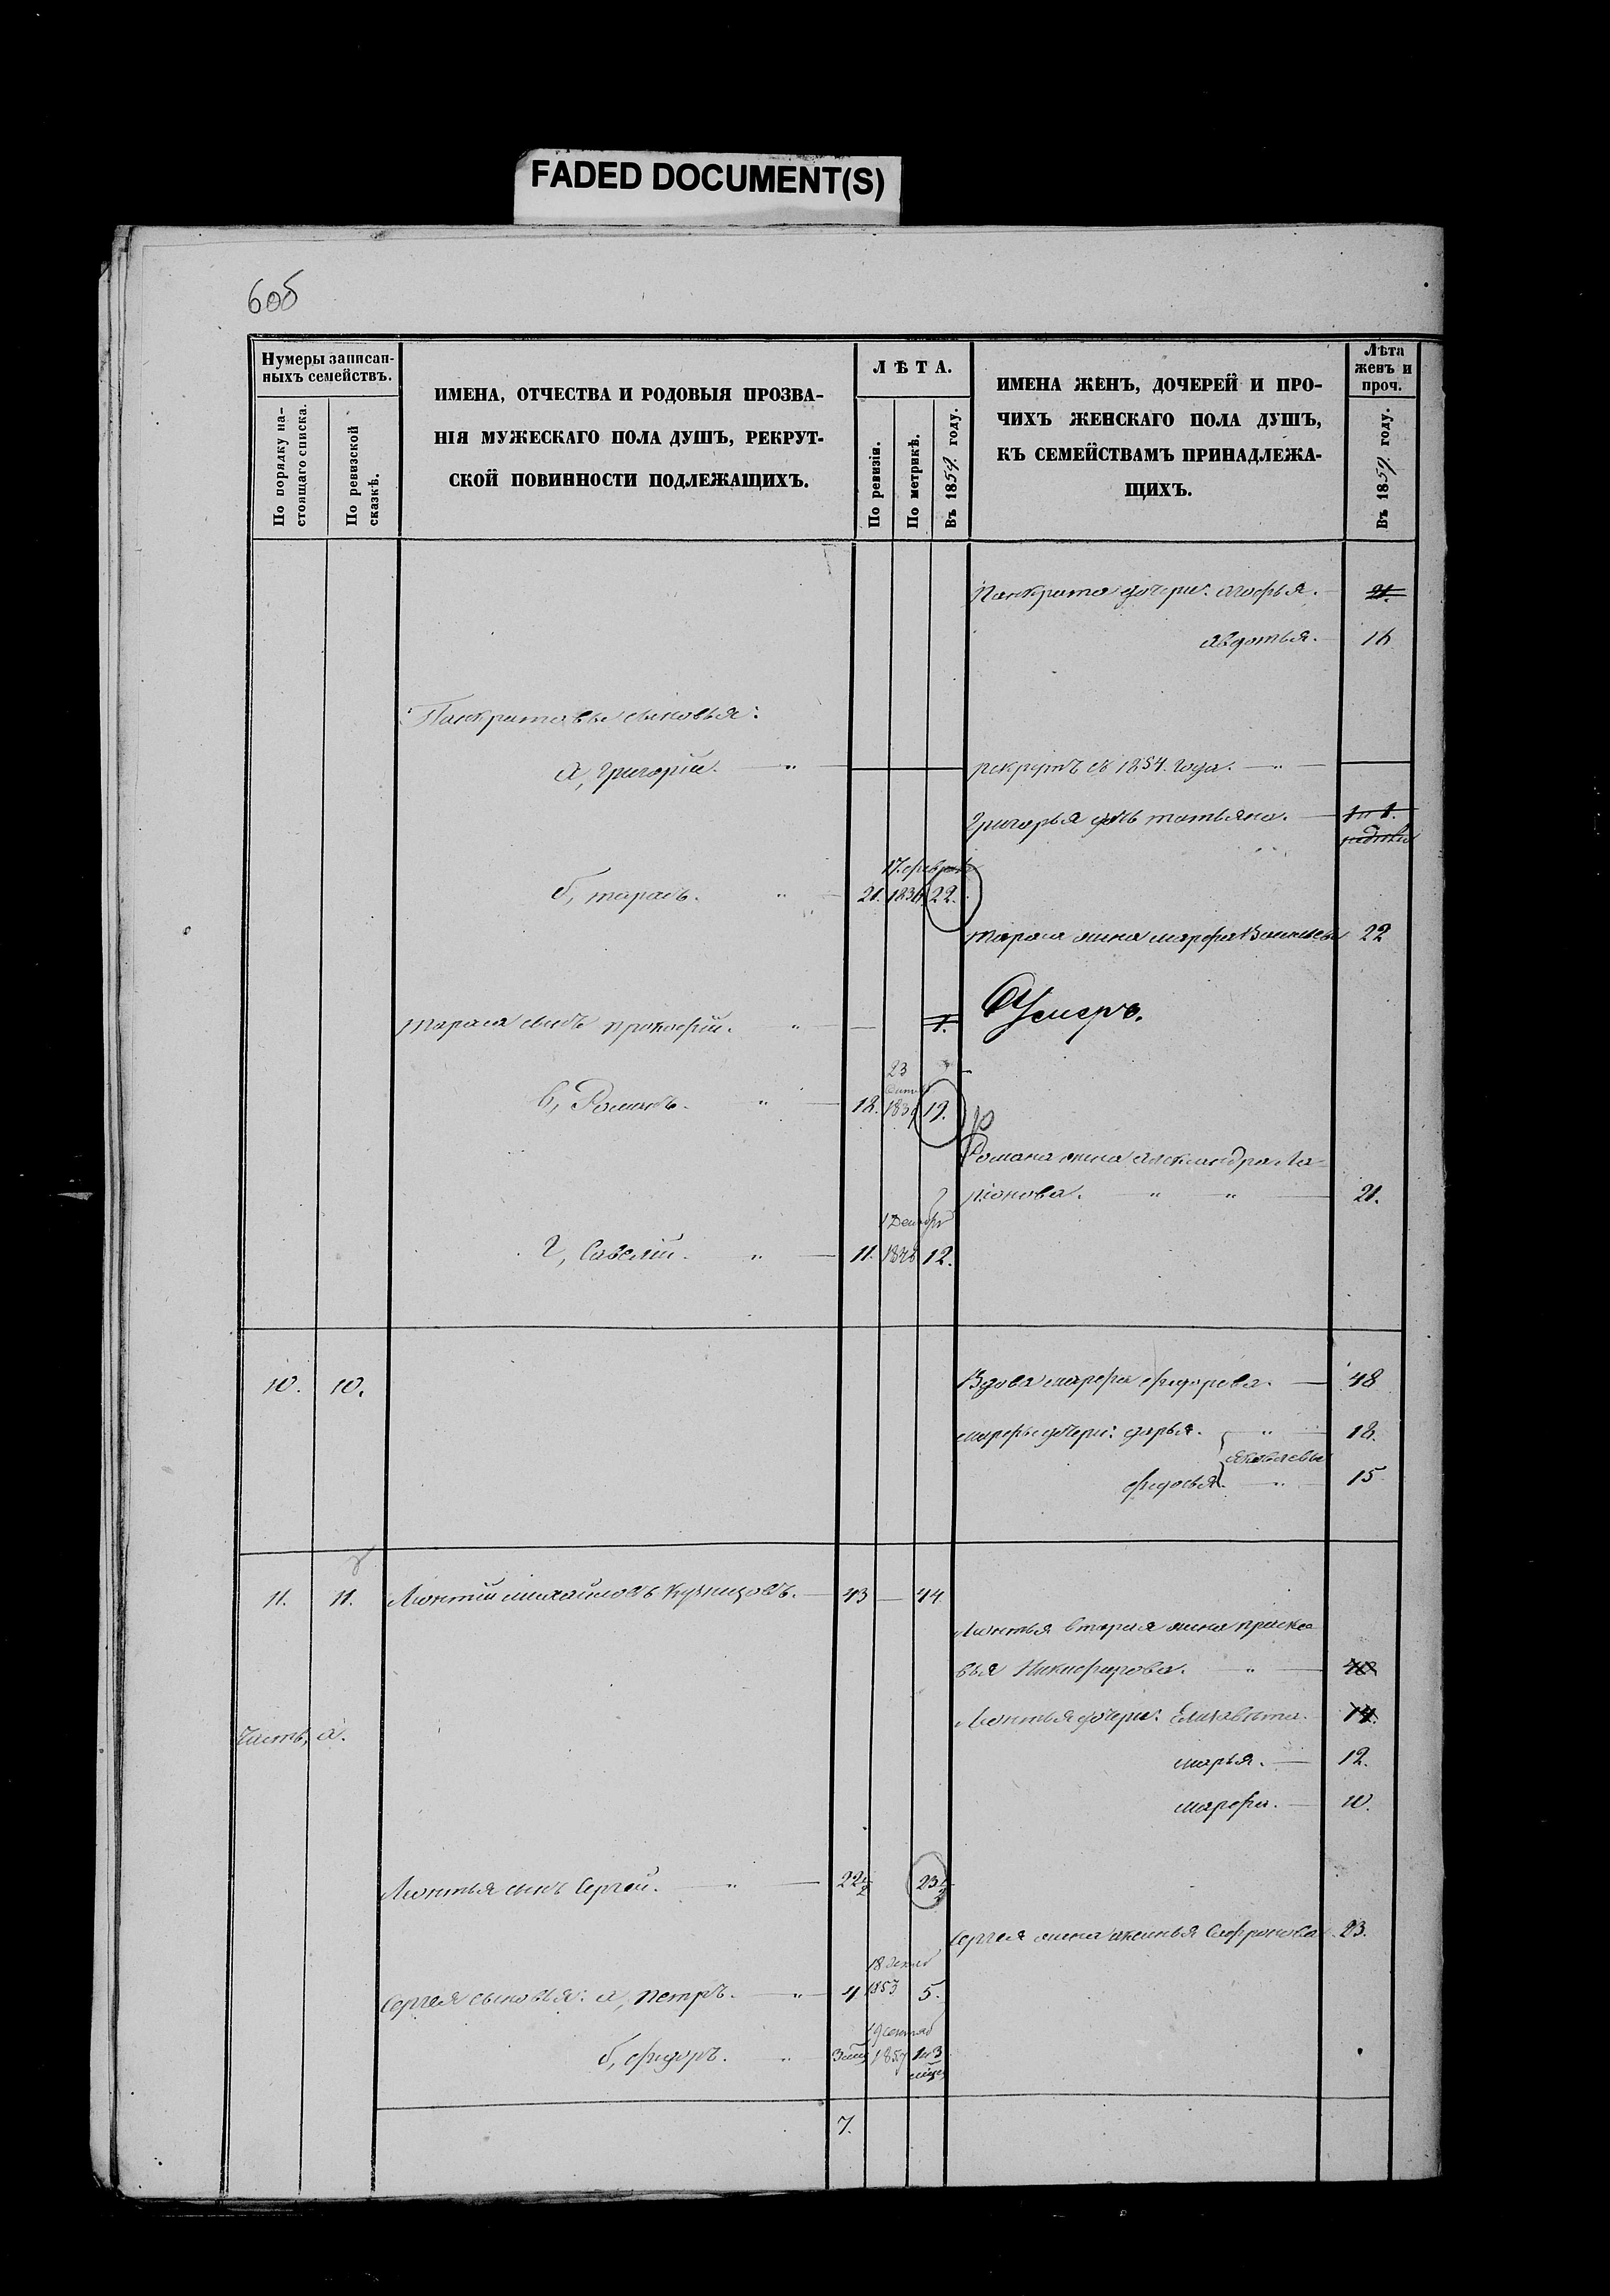 FADED DOCUMENT(S)
606
Нумеры записан-
ныхъ семействъ.
По порядку на-
стоящаго списка.
По ревизской
сказкѣ.
ИМЕНА, ОТЧЕСТВА И РОДОВЫЯ ПРОЗВА-
НІЯ МУЖЕСКАГО ПОЛА ДУШЪ, РЕКРУТ-
СКОЙ ПОВИННОСТИ ПОДЛЕЖАЩИХЪ.
ЛѢТА.
По ревизіи.
По метрикѣ.
Въ 1859 году.
ИМЕНА ЖЕНЪ, ДОЧЕРЕЙ И ПРО-
ЧИХЪ ЖЕНСКАГО ПОЛА ДУШЪ,
КЪ СЕМЕЙСТВАМЪ ПРИНАДЛЕЖА-
ЩИХЪ.
Лѣта
женъ и
проч.
Въ 1859 году.
Панкрата дочери:
21.
Авдотья. 16
Панкратовы сыновья:
а, Григорій. " рекрутъ съ 1854. года. "
Григорья дочь татьяна. 1 и 1.
недѣли
17. февраля
б, тарасъ. " 21. 1836 22.
тараса жена марфа 22
тараса сынъ прокофій. " 1. Умеръ.
23
в, Романъ. " 18. 1839 19.
Романа жена александра Ла-
ріонова. " " 21.
1 Декабр
г, Савелій. " 11. 1846 12.
10. 10. Вдова марфа федорова. 48
марфы дочери: дарья. " 18.
яковлевы
федосья. " 15
11. 11. Леонтій михайловъ Кузнецовъ. 43 44.
Леонтья вторая жена праско
вья Никифорова. " 40
Леонтья дочери: Елизавета. 14.
Часть, а.
марья. 12.
марфа. 10.
Леонтья сынъ Сергей. " 22½ 23½
Сергея жена аксинья Сафронова. 23.
18
Сергея сыновья: а, петръ. " 4 1853 5.
19 сентяб
б, федоръ. " 3 мц 1857 1 и 3
мѣся
7.